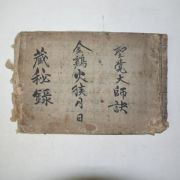 聖覺大師訣
金鷄火候月日
藏秘錄